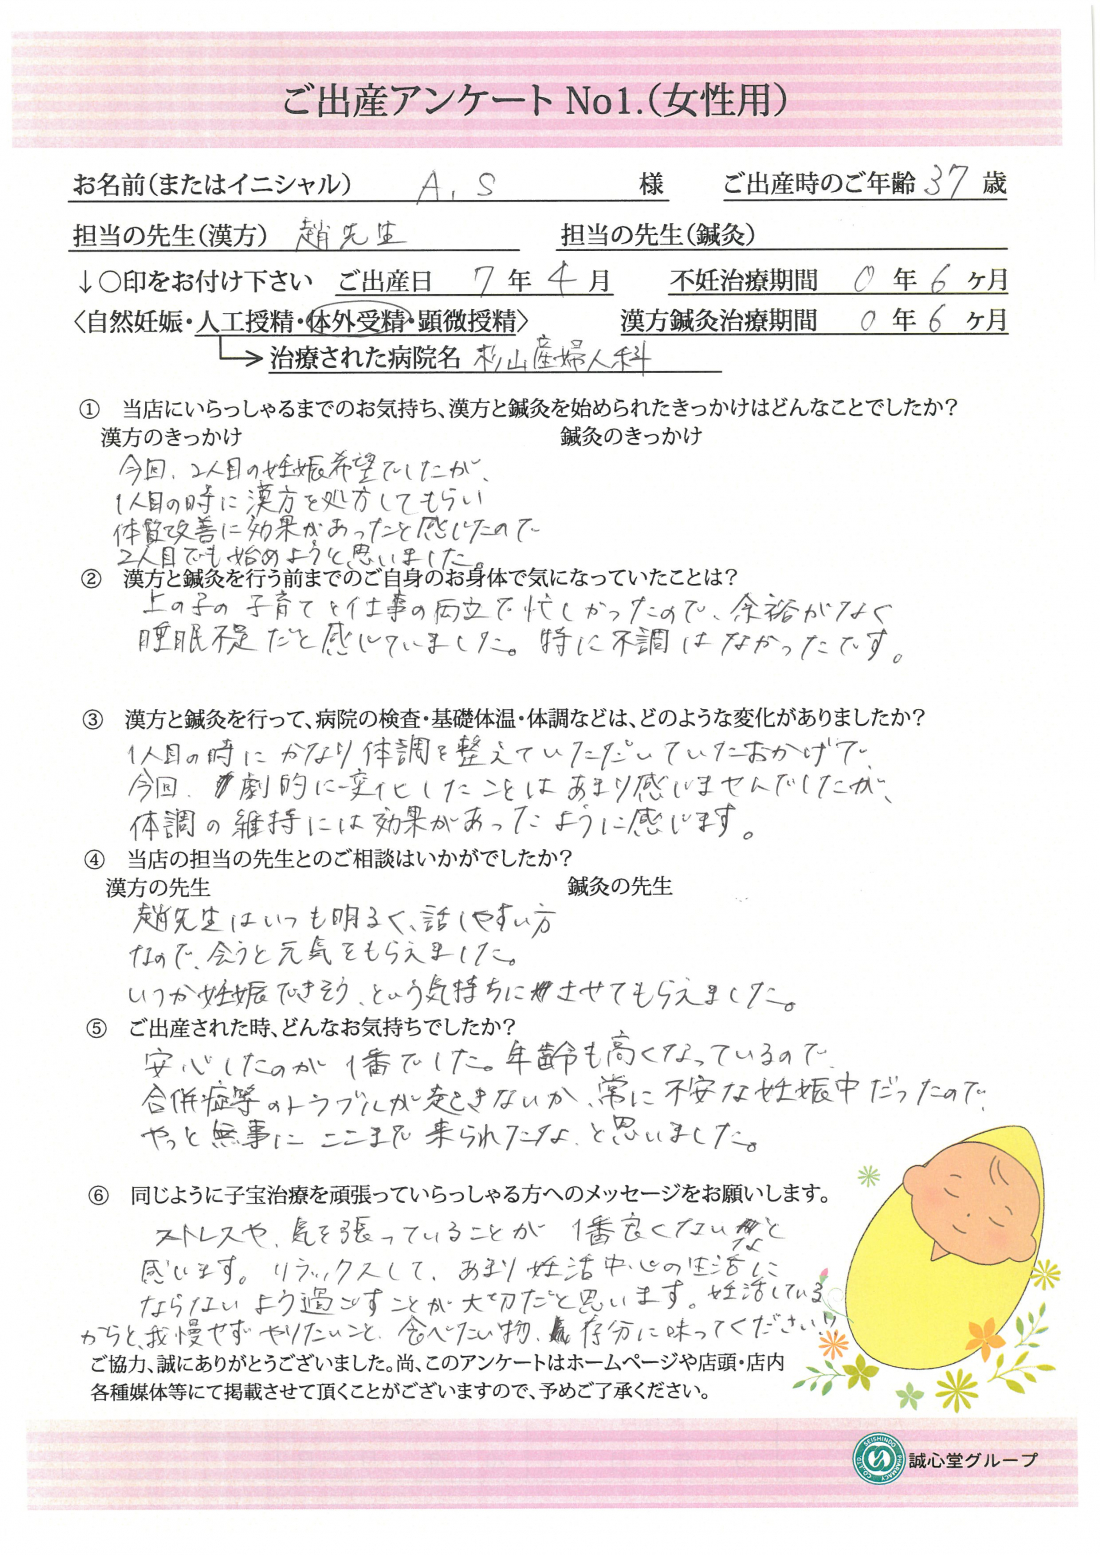 ご出産アンケート No1.(女性用)
お名前(またはイニシャル) A.S 様 ご出産時のご年齢 37 歳
担当の先生(漢方) 趙先生 担当の先生(鍼灸)
↓○印をお付け下さい ご出産日 7年 4月 不妊治療期間 0年 6ヶ月
〈自然妊娠・人工授精・体外受精・顕微授精〉 漢方鍼灸治療期間 0年 6ヶ月
治療された病院名 杉山産婦人科
① 当店にいらっしゃるまでのお気持ち、漢方と鍼灸を始められたきっかけはどんなことでしたか?
漢方のきっかけ 鍼灸のきっかけ
今回、2人目の妊娠希望でしたが、
1人目の時に漢方を処方してもらい
体質改善に効果があったと感じたので
2人目でも始めようと思いました。
② 漢方と鍼灸を行う前までのご自身のお身体で気になっていたことは?
上の子の子育てと仕事の両立で忙しかったので、余裕がなく
睡眠不足だと感じていました。特に不調はなかったです。
③ 漢方と鍼灸を行って、病院の検査・基礎体温・体調などは、どのような変化がありましたか?
1人目の時にかなり体調を整えていただいていたおかげで、
今回、劇的に変化したことはあまり感じませんでしたが、
体調の維持には効果があったように感じます。
④ 当店の担当の先生とのご相談はいかがでしたか?
漢方の先生 鍼灸の先生
趙先生はいつも明るく、話しやすい方
なので、会うと元気をもらえました。
いつか妊娠できそう、という気持ちにさせてもらえました。
⑤ ご出産された時、どんなお気持ちでしたか?
安心したのが1番でした。年齢も高くなっているので、
合併症等のトラブルが起きないか、常に不安な妊娠中だったので、
やっと無事にここまで来られたな、と思いました。
⑥ 同じように子宝治療を頑張っていらっしゃる方へのメッセージをお願いします。
ストレスや、気を張っていることが1番良くないなと
感じます。リラックスして、あまり妊活中心の生活に
ならないよう過ごすことが大切だと思います。妊活している
からと、我慢せずやりたいこと、食べたい物、存分に味ってください!!
ご協力、誠にありがとうございました。尚、このアンケートはホームページや店頭・店内
各種媒体等にて掲載させて頂くことがございますので、予めご了承ください。
SEISHINDO PHARMACY CO.,LTD.
誠心堂グループ